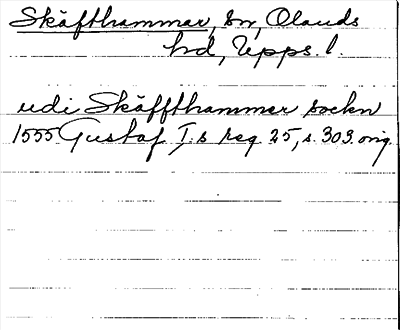 Skäfthammar, sn, Olands
hd, Upps. l.
udi Skäffthammer sockn
1555 Gustaf I:s reg 25, s. 303. orig.